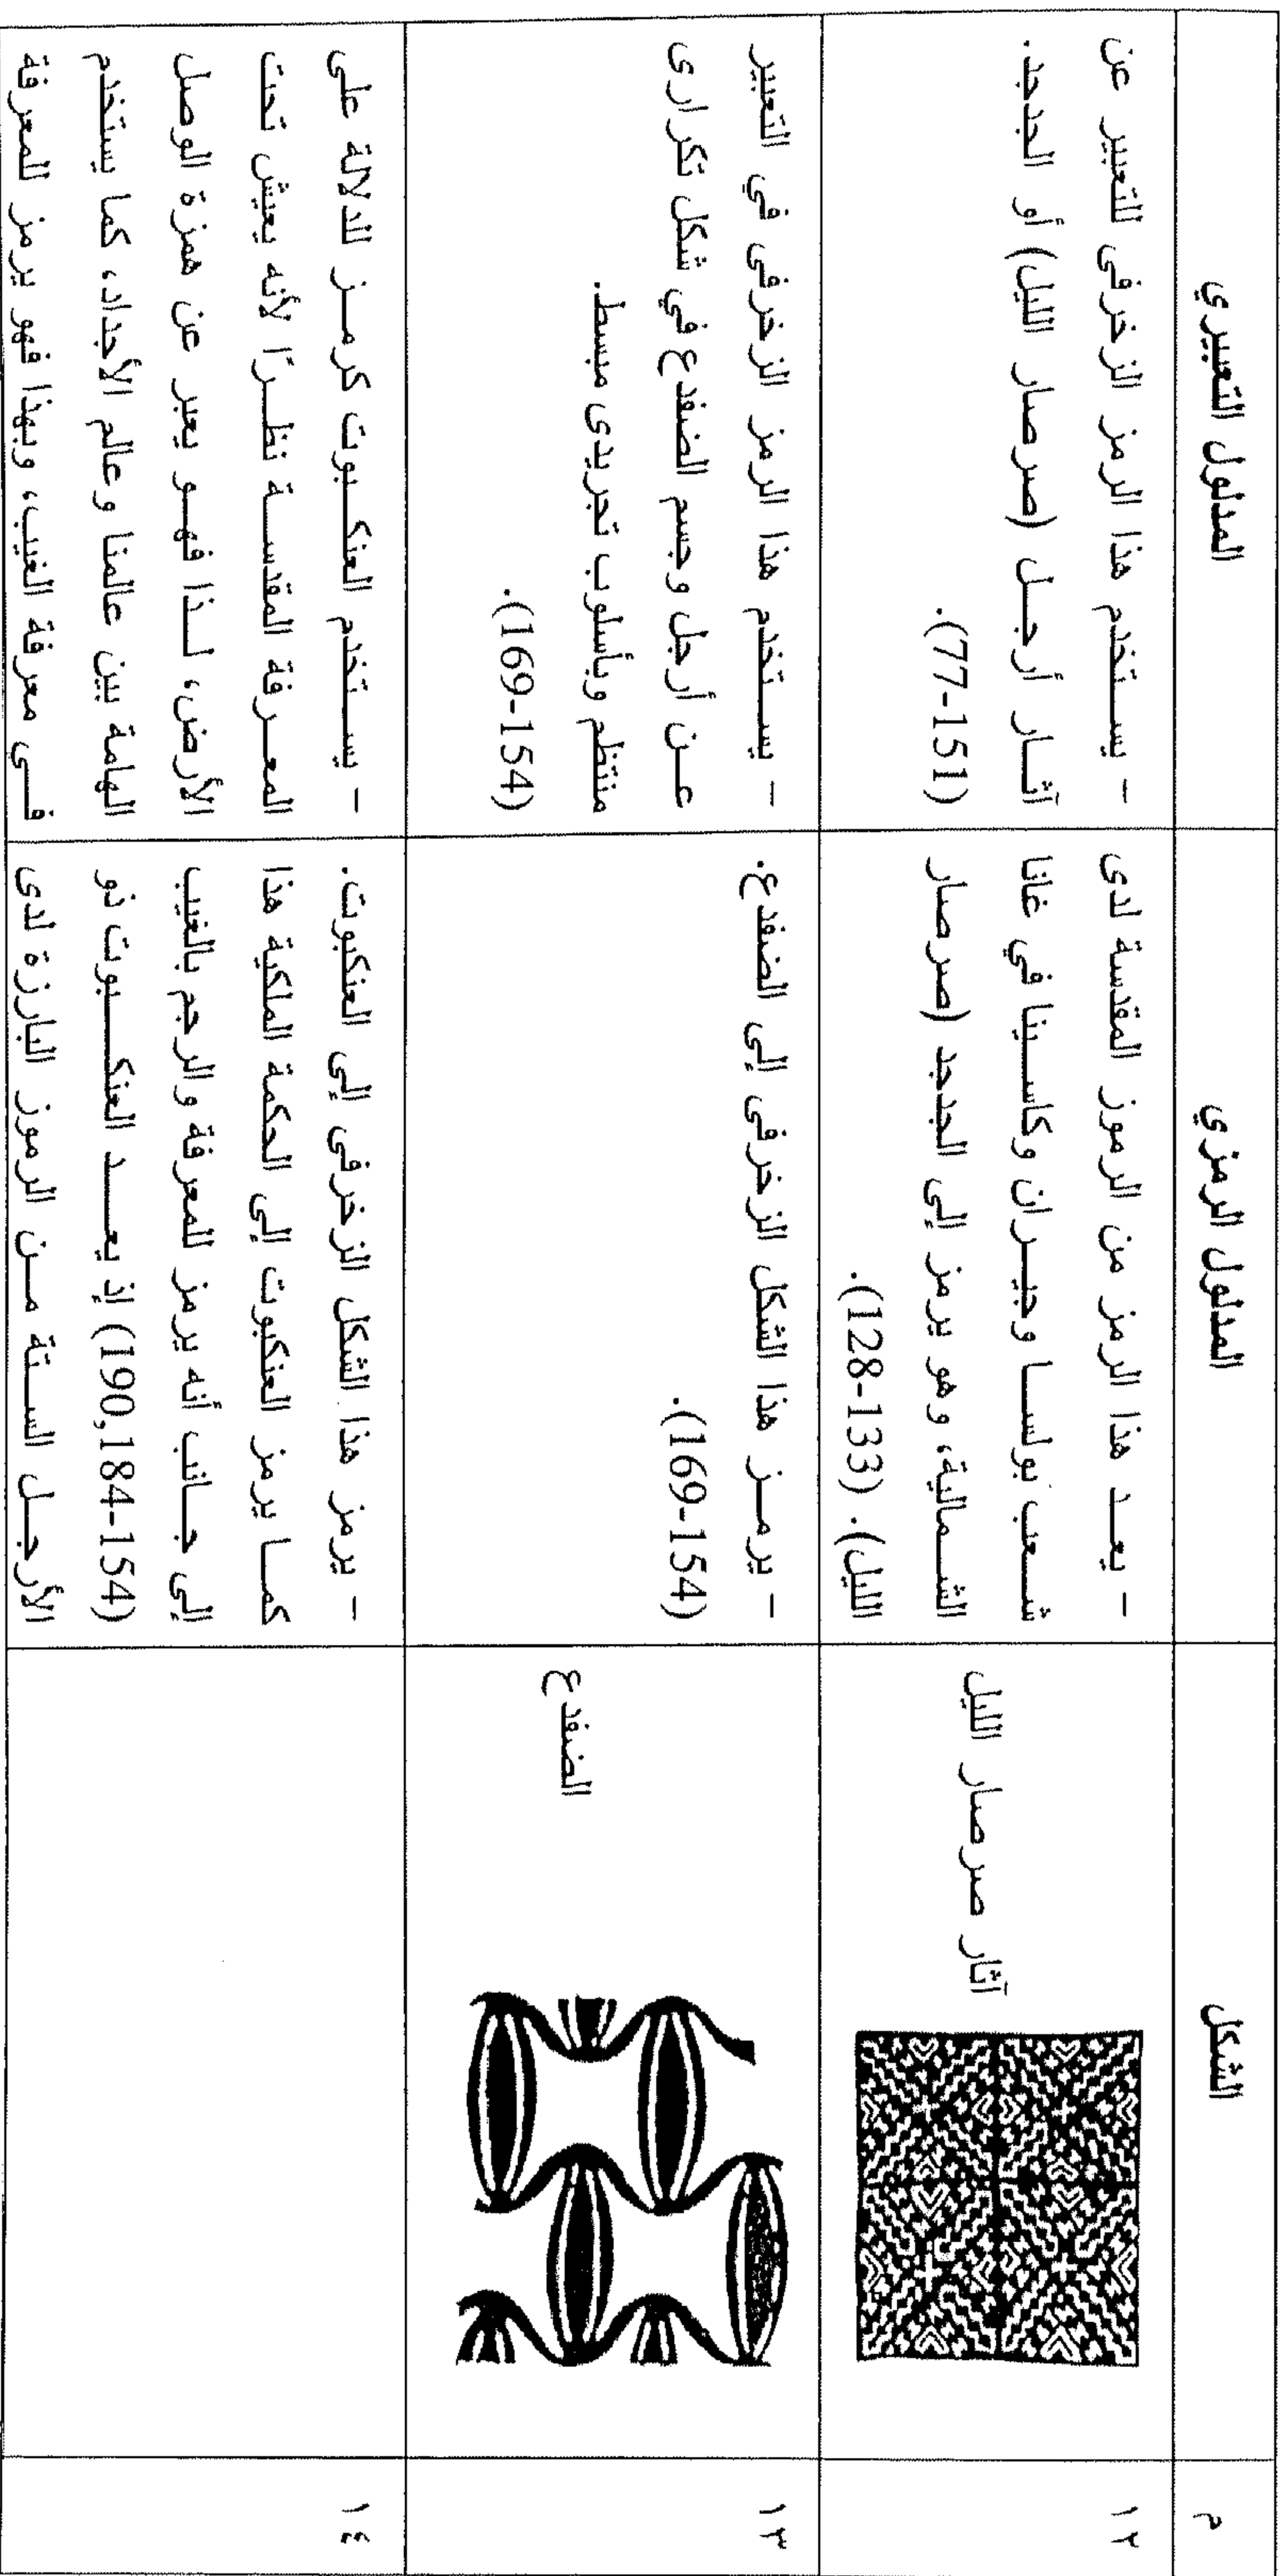 م
الشكل
المدلول الرمزي
المدلول التعبيري
١٢
آثار صرصار الليل
- يعد هذا الرمز من الرموز المقدسة لدى
شعب بولسا وجيران وكاسينا في غانا
الشمالية، وهو يرمز إلى الجدجد (صرصار
الليل). (128-133).
- يستخدم هذا الرمز الزخرفى للتعبير عن
آثار أرجل (صرصار الليل) أو الجدجد.
(77-151).
١٣
الضفدع
- يرمز هذا الشكل الزخرفى إلى الضفدع.
(169-154).
- يستخدم هذا الرمز الزخرفى في التعبير
عن أرجل وجسم الضفدع في شكل تكرارى
منتظم وبأسلوب تجريدى مبسط.
(169-154).
١٤
- يرمز هذا الشكل الزخرفى إلى العنكبوت.
كما يرمز العنكبوت إلى الحكمة الملكية هذا
إلى جانب أنه يرمز للمعرفة والرجم بالغيب
(190,184-154) إذ يعد العنكبوت ذو
الأرجل الستة من الرموز البارزة لدى
- يستخدم العنكبوت كرمز للدلالة على
المعرفة المقدسة نظرًا لأنه يعيش تحت
الأرض، لذا فهو يعبر عن همزة الوصل
الهامة بين عالمنا وعالم الأجداد، كما يستخدم
فى معرفة الغيب، وبهذا فهو يرمز للمعرفة